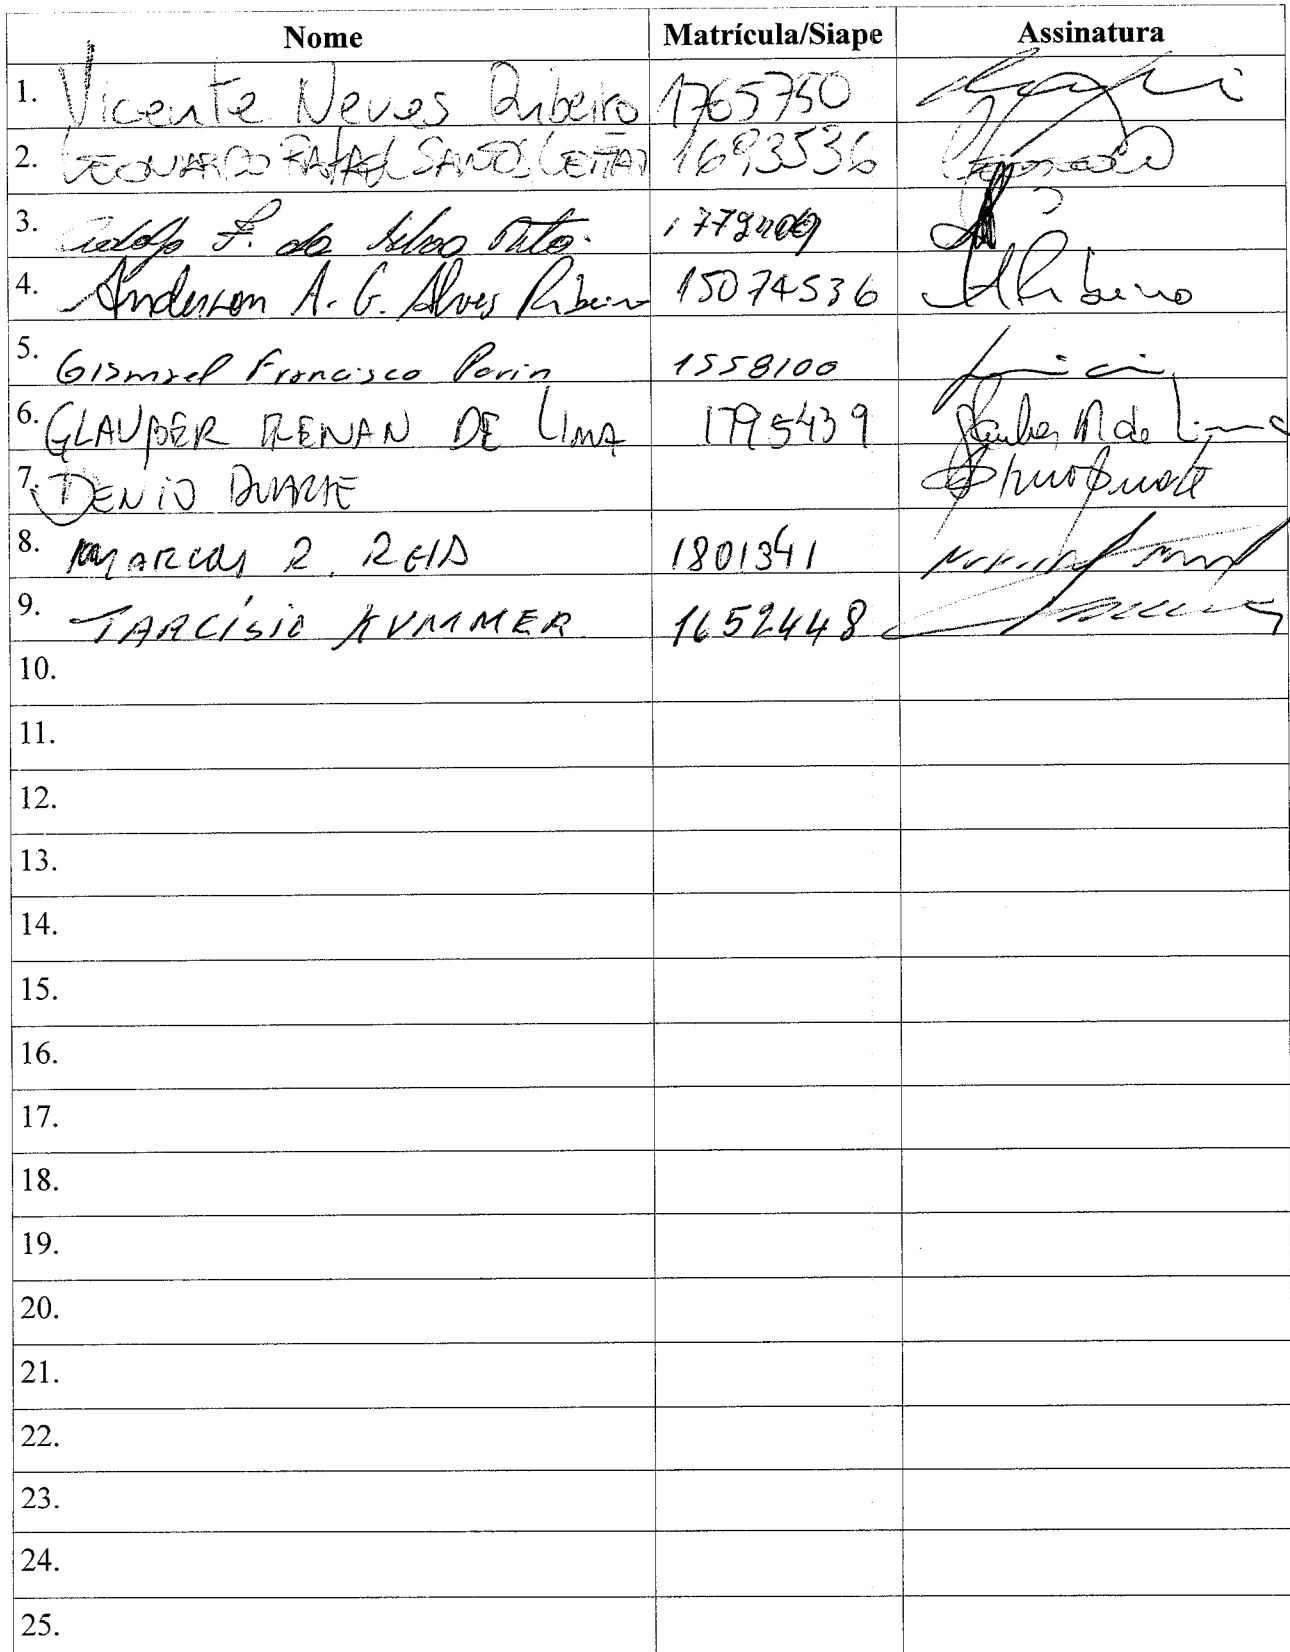 Nome Matrícula/Siape Assinatura
1. Vicente Neves Ribeiro 1765750
2. LEONARDO RAFAEL SANTOS LEITÃO 1693536 Leonardo
3. F. da Silva 
4. Anderson A. G. Alves Ribeiro 15074536 ARibeiro
5. Gismael Francisco Perin 1558100
6. GLAUBER RENAN DE LIMA 1795439 Glauber R de Lima
7. DENIO DUARTE Denio Duarte
8. MARCOS R. REIS 1801341
9. TARCÍSIO KUMMER 1652448
10.
11.
12.
13.
14.
15.
16.
17.
18.
19.
20.
21.
22.
23.
24.
25.